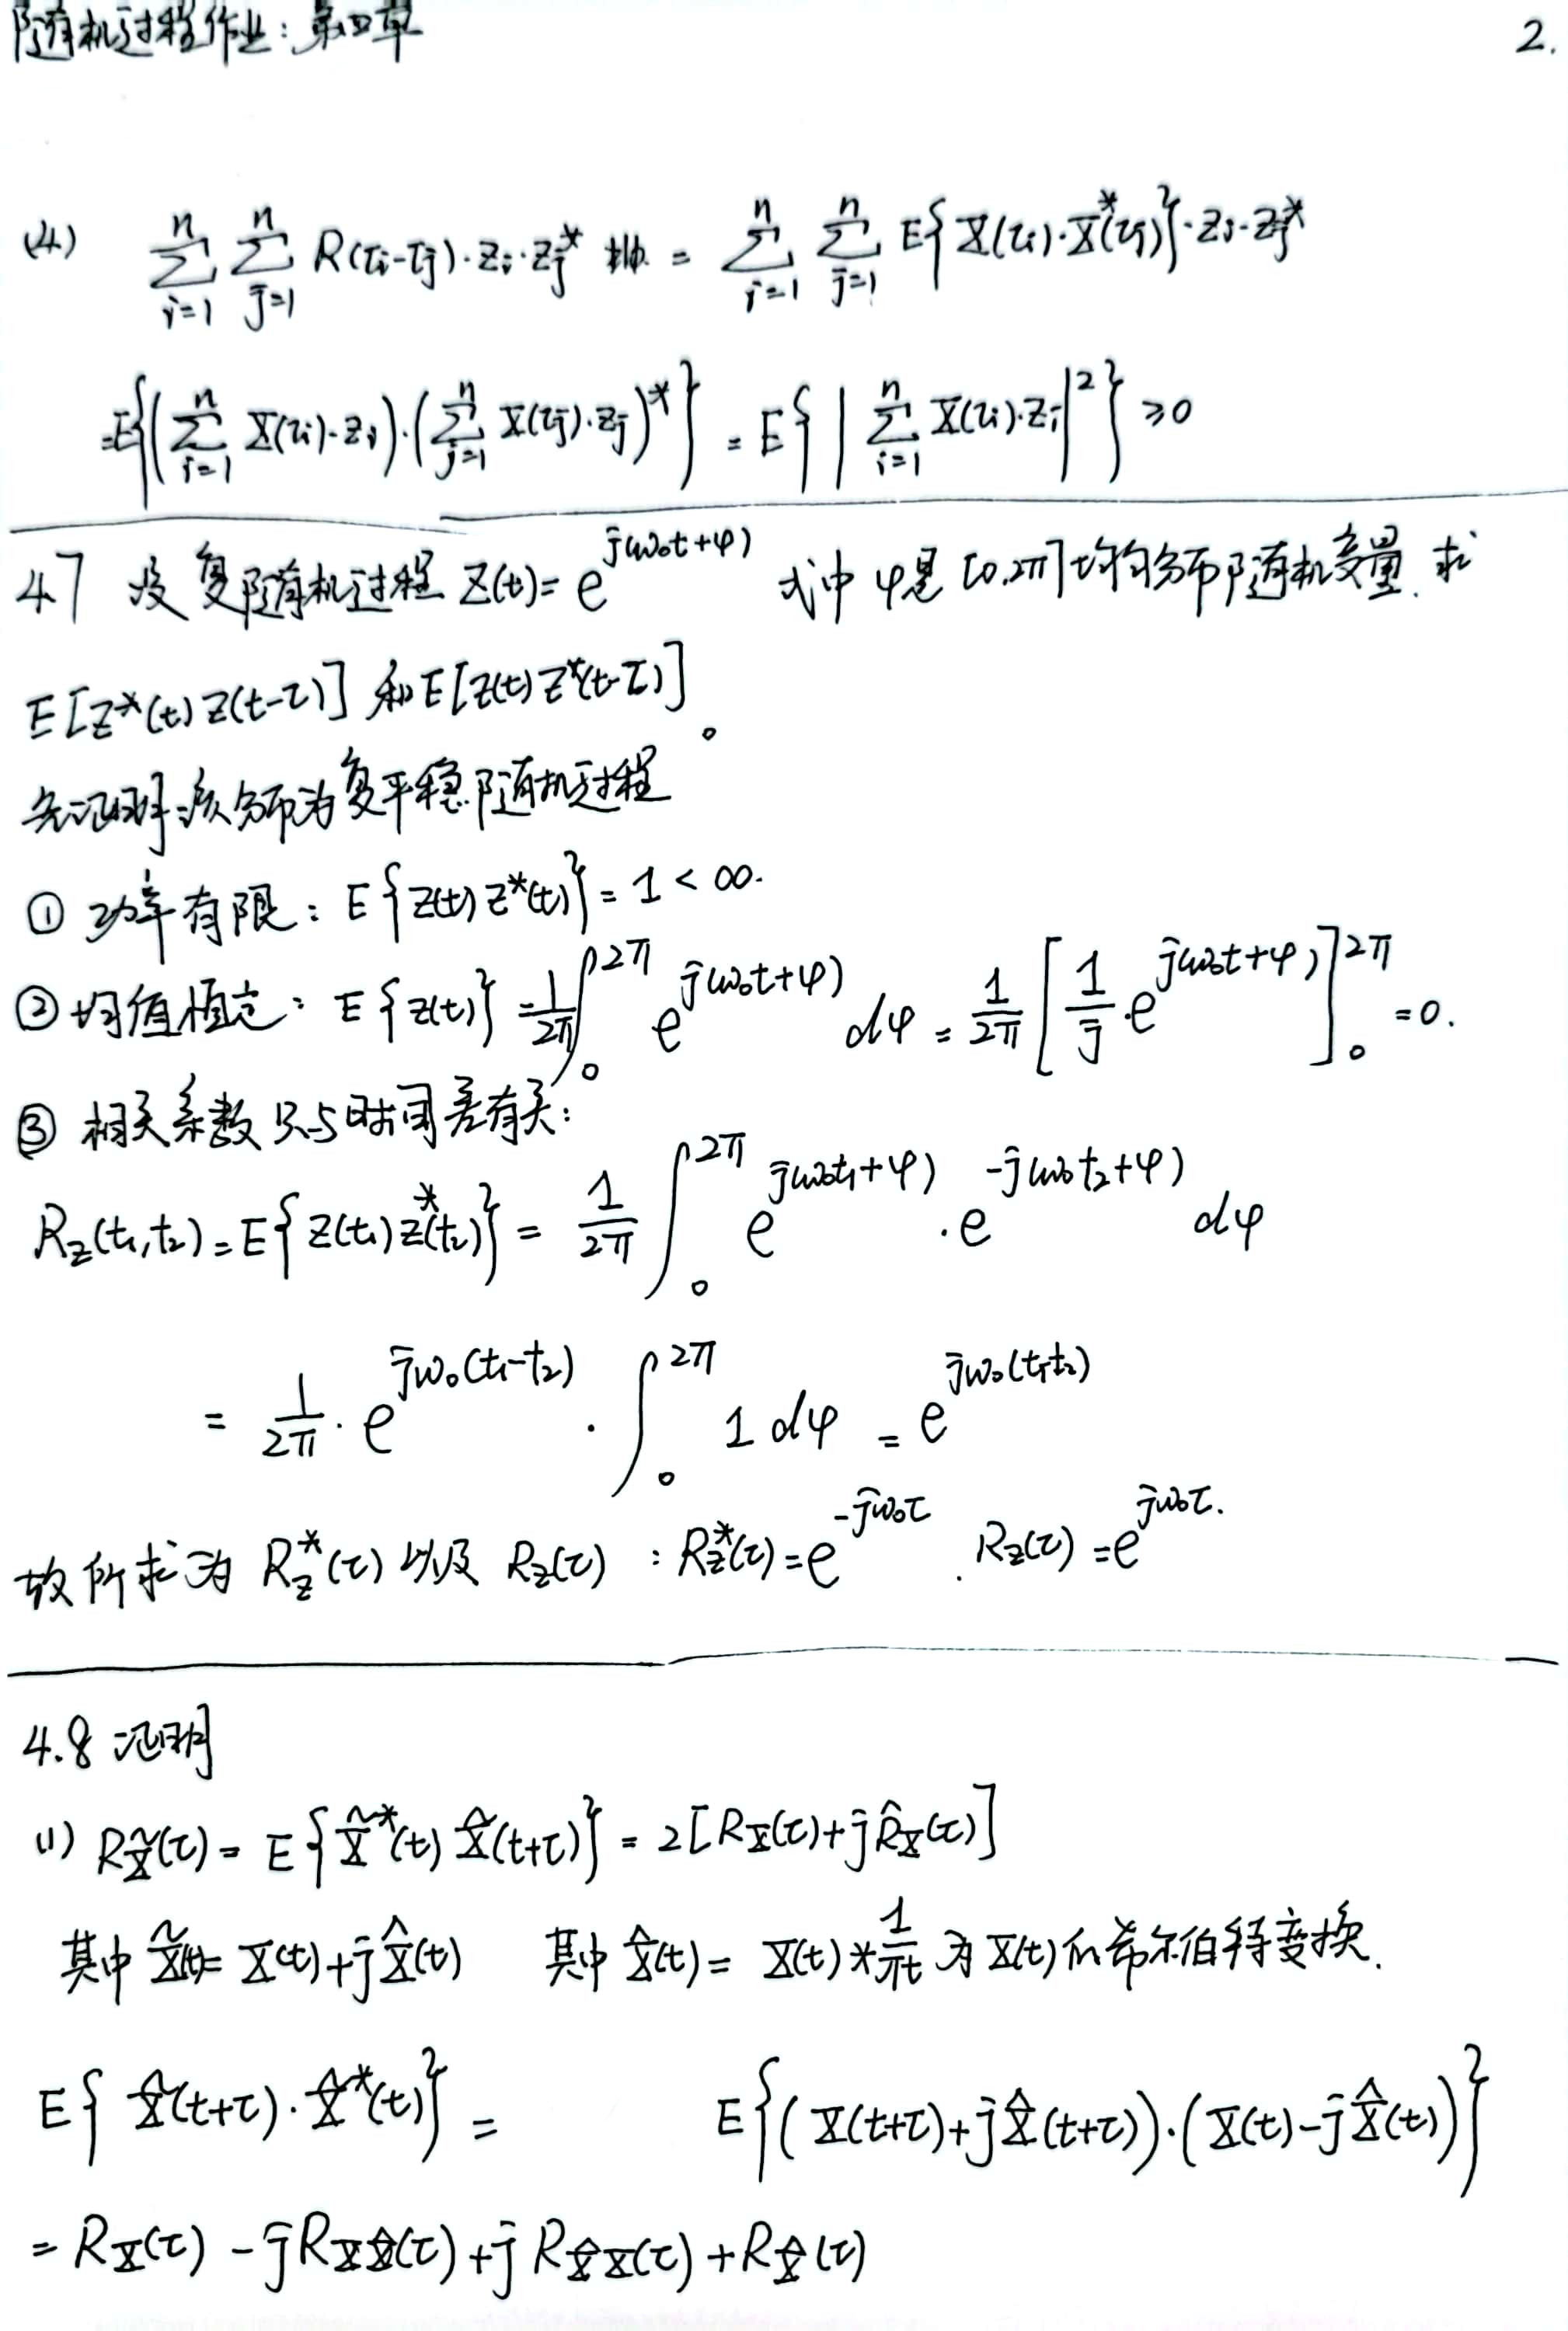 随机过程作业：第四章 2.
(4) \sum_{i=1}^{n} \sum_{j=1}^{n} R(τ_i-τ_j)·z_i·z_j^* = \sum_{i=1}^{n} \sum_{j=1}^{n} E{X(τ_i)·X^*(τ_j)}·z_i·z_j^*
=E{(\sum_{i=1}^{n} X(τ_i)·z_i)·(\sum_{j=1}^{n} X(τ_j)·z_j)^*} = E{|\sum_{i=1}^{n} X(τ_i)·z_i|^2} ≥0
4.7 设复随机过程 Z(t)= e^{j(ω_0t+φ)} 式中 φ是[0,2π]均匀分布随机变量. 求
E[Z^*(t) Z(t-τ)] 和 E[Z(t) Z^*(t-τ)]。
先证明:该分布为复平稳随机过程
① 功率有限: E{Z(t) Z^*(t)} = 1 < ∞.
② 均值恒定: E{Z(t)} = \frac{1}{2π} \int_0^{2π} e^{j(ω_0t+φ)} dφ = \frac{1}{2π} [\frac{1}{j}·e^{j(ω_0t+φ)}]_0^{2π} =0.
③ 相关系数只与时间差有关:
R_Z(t_1,t_2) = E{Z(t_1) Z^*(t_2)} = \frac{1}{2π} \int_0^{2π} e^{j(ω_0t_1+φ)}·e^{-j(ω_0t_2+φ)} dφ
= \frac{1}{2π}·e^{jω_0(t_1-t_2)}·\int_0^{2π} 1 dφ = e^{jω_0(t_1-t_2)}
故所求为 R_Z^*(τ) 以及 R_Z(τ) : R_Z^*(τ)=e^{-jω_0τ}. R_Z(τ) =e^{jω_0τ}.
4.8 证明
(1) R_{\tilde{X}}(τ) = E{\tilde{X}^*(t) \tilde{X}(t+τ)} = 2[R_X(τ)+j\hat{R}_X(τ)]
其中 \tilde{X}(t)= X(t)+j\hat{X}(t) 其中 \hat{X}(t) = X(t)*\frac{1}{πt} 为 X(t) 的希尔伯特变换.
E{\tilde{X}(t+τ)·\tilde{X}^*(t)} = E{(X(t+τ)+j\hat{X}(t+τ))·(X(t)-j\hat{X}(t))}
= R_X(τ) -jR_{X\hat{X}}(τ)+jR_{\hat{X}X}(τ) +R_{\hat{X}}(τ)